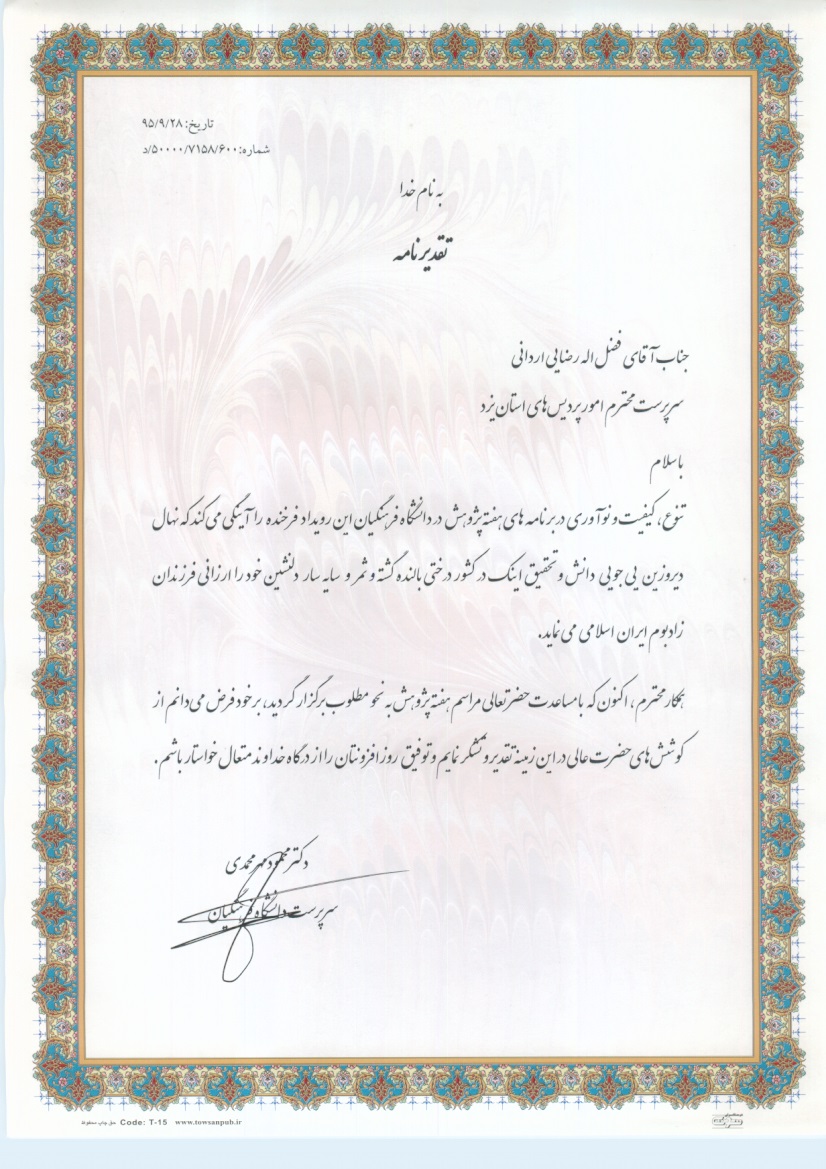 تاریخ: ۹۵/۹/۲۸
شماره: ۵۰۰۰۰/۷۱۵۸/۶۰۰/د
به نام خدا
تقدیرنامه
جناب آقای فضل اله رضایی اردانی
سرپرست محترم امور پردیس های استان یزد
با سلام
تنوع، کیفیت و نوآوری در برنامه های هفته پژوهش در دانشگاه فرهنگیان این رویداد فرخنده را آینگی می کند که نهال
دیروزین پی جویی دانش و تحقیق اینک در کشور درختی بالنده گشته و ثمر و سایه سار دلنشین خود را ارزانی فرزندان
زادبوم ایران اسلامی می نماید.
همکار محترم، اکنون که با مساعدت حضرتعالی مراسم هفته پژوهش به نحو مطلوب برگزار گردید، بر خود فرض می دانم از
کوشش های حضرت عالی در این زمینه تقدیر و تشکر نمایم و توفیق روز افزونتان را از درگاه خداوند متعال خواستار باشم.
دکتر محمود مهرمحمدی
سرپرست دانشگاه فرهنگیان
حق چاپ محفوظ Code: T-15 www.towsanpub.ir